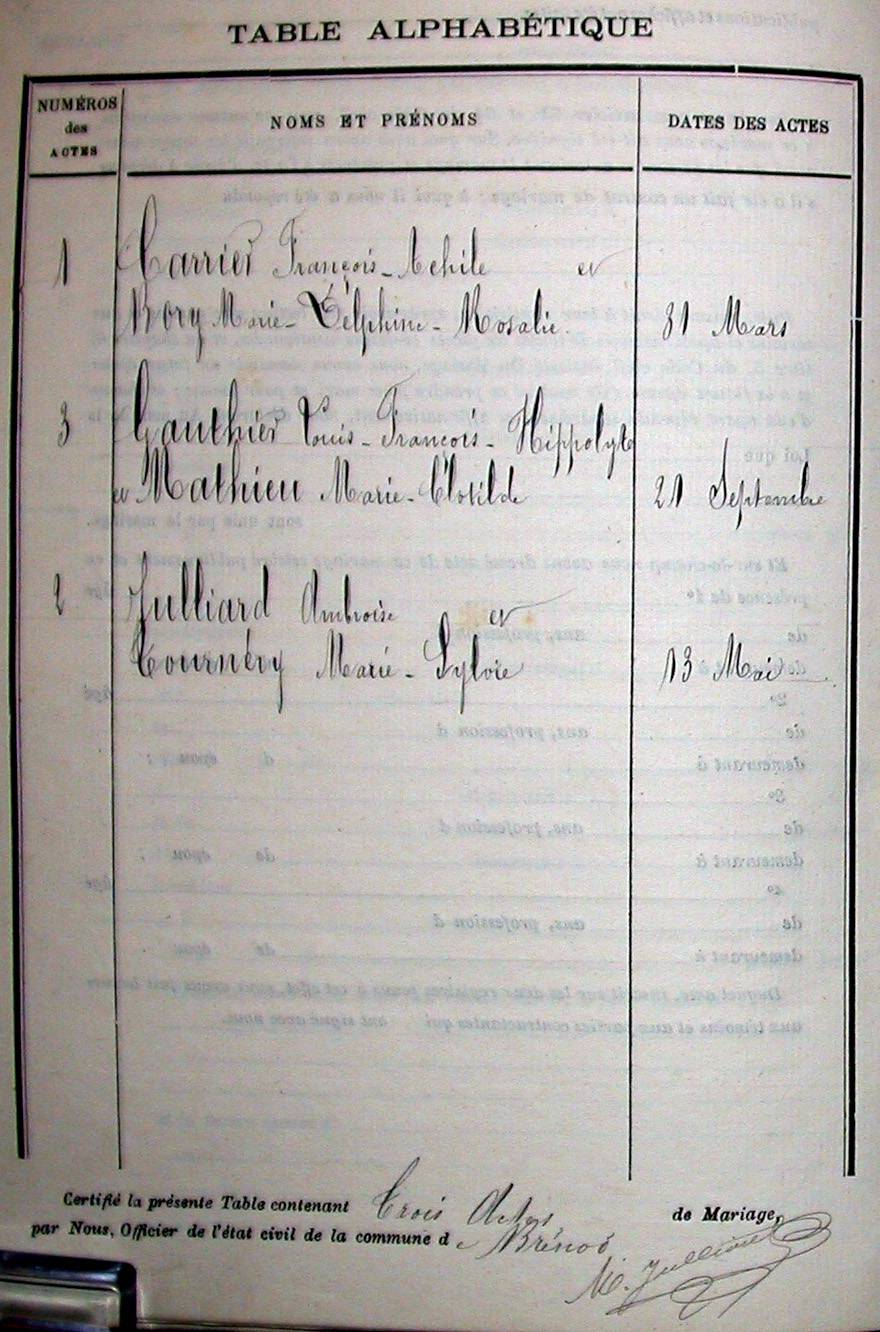 TABLE ALPHABÉTIQUE
NUMÉROS des ACTES
NOMS ET PRÉNOMS
DATES DES ACTES
1 Carrier François-Achile et
Bory Marie-Delphine-Rosalie. 31 Mars
3 Gauthier Louis-François-Hippolyte
et Mathieu Marie-Clotilde 21 Septembre
2 Julliard Ambroise et
Tournéry Marie-Sylvie 13 Mai
Certifié la présente Table contenant Trois Actes de Mariage,
par Nous, Officier de l'état civil de la commune de Brénod
Julliard